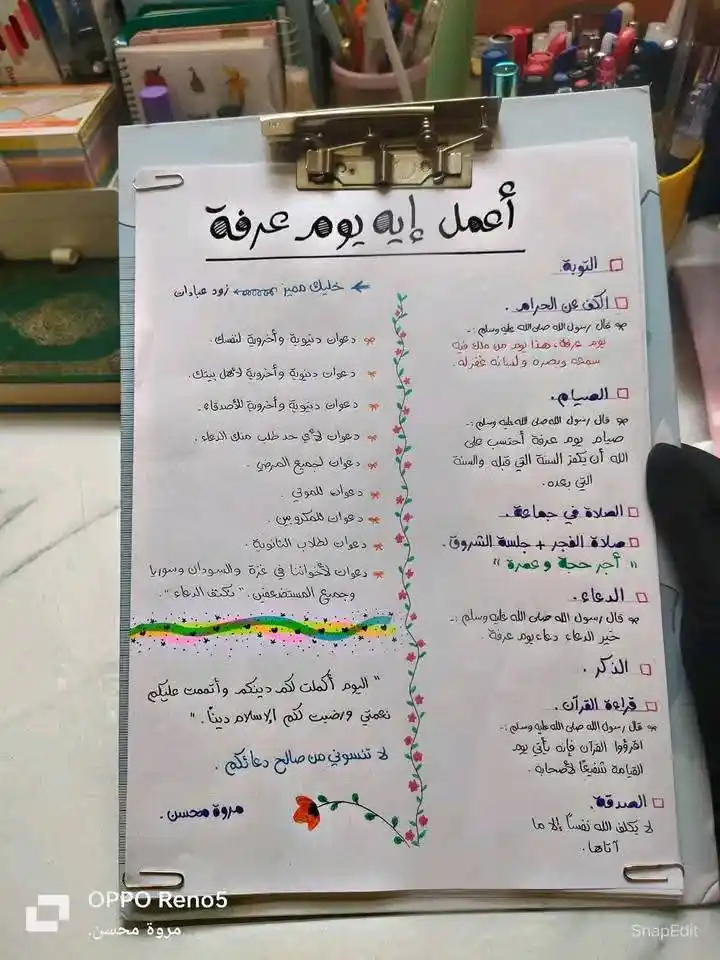 أعمل إيه يوم عرفة
التوبة.
الكف عن الحرام.
قال رسول الله صلى الله عليه وسلم :-
يوم عرفة، هذا يوم من ملك فيه
سمعه وبصره ولسانه غفر له.
الصيام.
قال رسول الله صلى الله عليه وسلم :-
صيام يوم عرفة أحتسب على
الله أن يكفر السنة التي قبله والسنة
التي بعده.
الصلاة في جماعة.
صلاة الفجر + جلسة الشروق.
" أجر حجة وعمرة "
الدعاء.
قال رسول الله صلى الله عليه وسلم :-
خير الدعاء دعاء يوم عرفة
الذكر.
قراءة القرآن.
قال رسول الله صلى الله عليه وسلم :-
اقرؤوا القرآن فإنه يأتي يوم
القيامة شفيعًا لأصحابه.
الصدقة.
لا يكلف الله نفسًا إلا ما
آتاها.
خليك مميز زود عبادات
دعوات دنيوية وأخروية لنفسك.
دعوات دنيوية وأخروية لأهل بيتك.
دعوات دنيوية وأخروية للأصدقاء.
دعوات لأي حد طلب منك الدعاء.
دعوات لجميع المرضى.
دعوات للموتى.
دعوات للمكروبين.
دعوات لطلاب الثانوية.
دعوات لأخواننا في غزة والسودان وسوريا
وجميع المستضعفين. "نكثف الدعاء".
" اليوم أكملت لكم دينكم وأتممت عليكم
نعمتي ورضيت لكم الإسلام دينًا. "
لا تنسوني من صالح دعائكم.
مروة محسن.
OPPO Reno5
مروة محسن.
SnapEdit